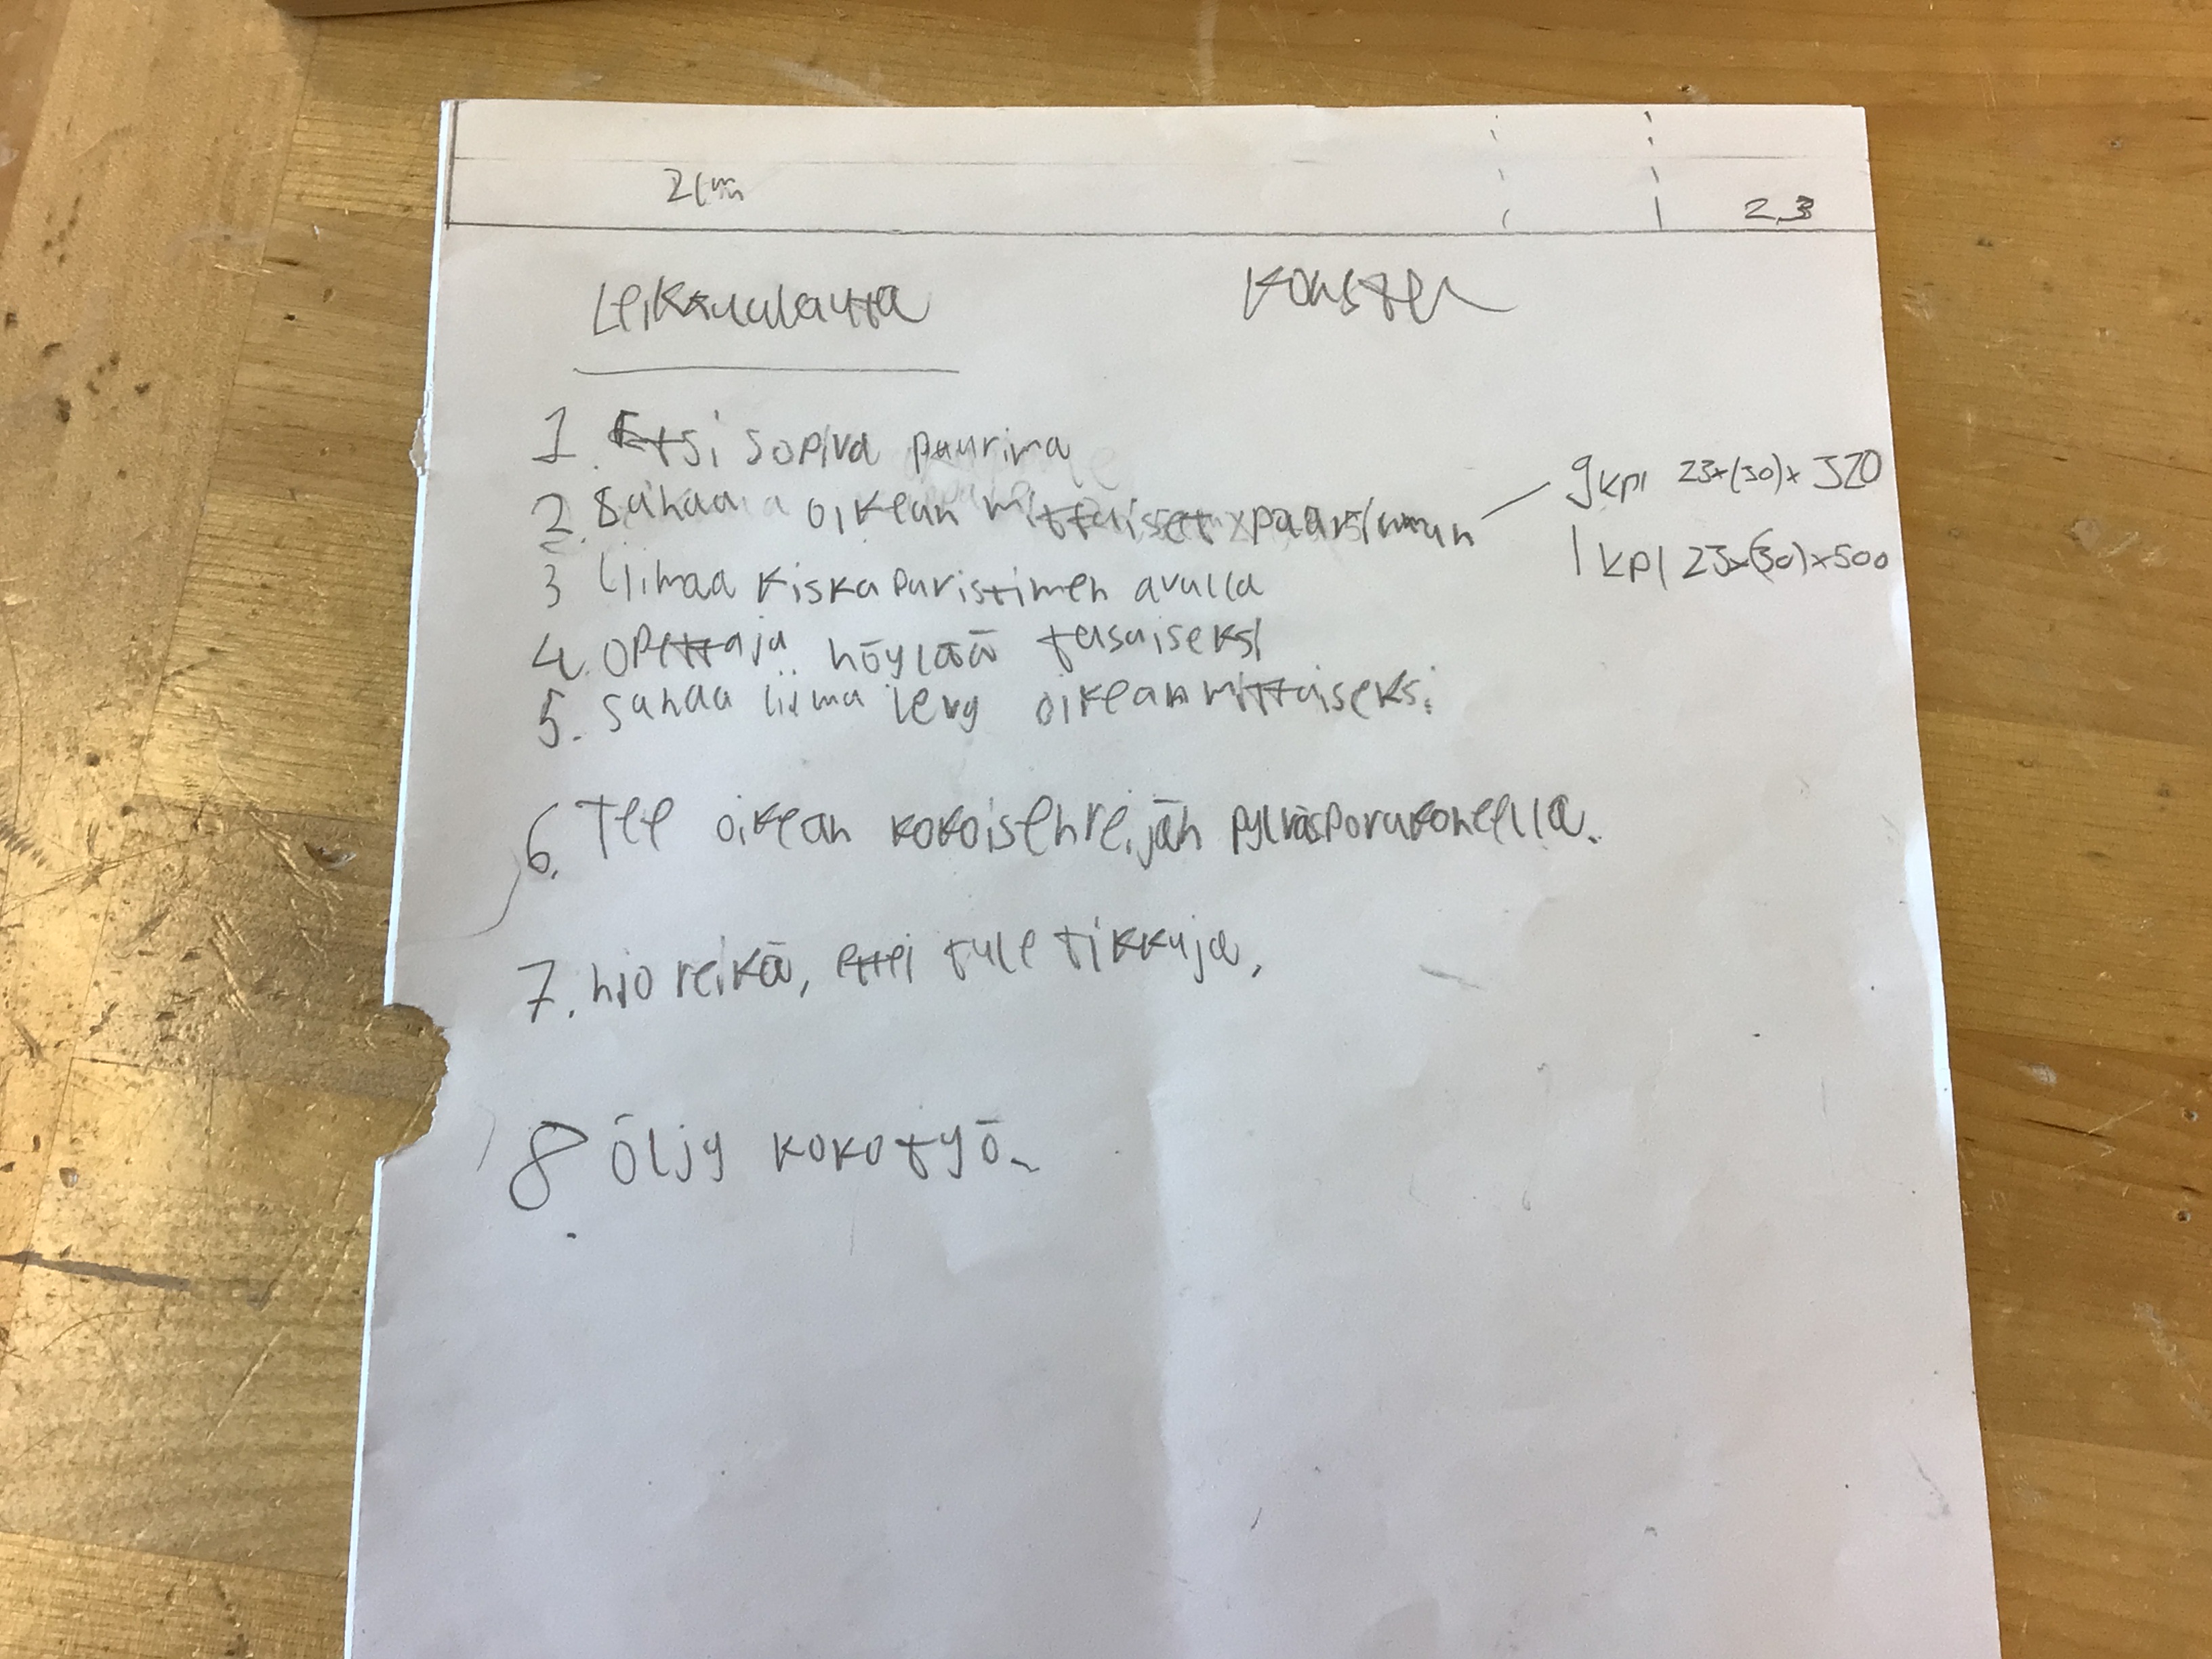 2cm
2,3
Leikkuulauta Konsten
1. Etsi sopiva puurima
2. Sahaa oikean mittaiset
9 kpl 23x(30)x 320
1 kpl 23x(30)x500
3 Liimaa kiskapuristimen avulla
4. opettaja höylää tasaiseksi
5. sahaa liima levy oikean mittaiseksi.
6. Tee oikean kokoisehreijän pylväsporakoneella.
7. hio reikä, ettei tule tikkuja,
8. öljy koko työ.